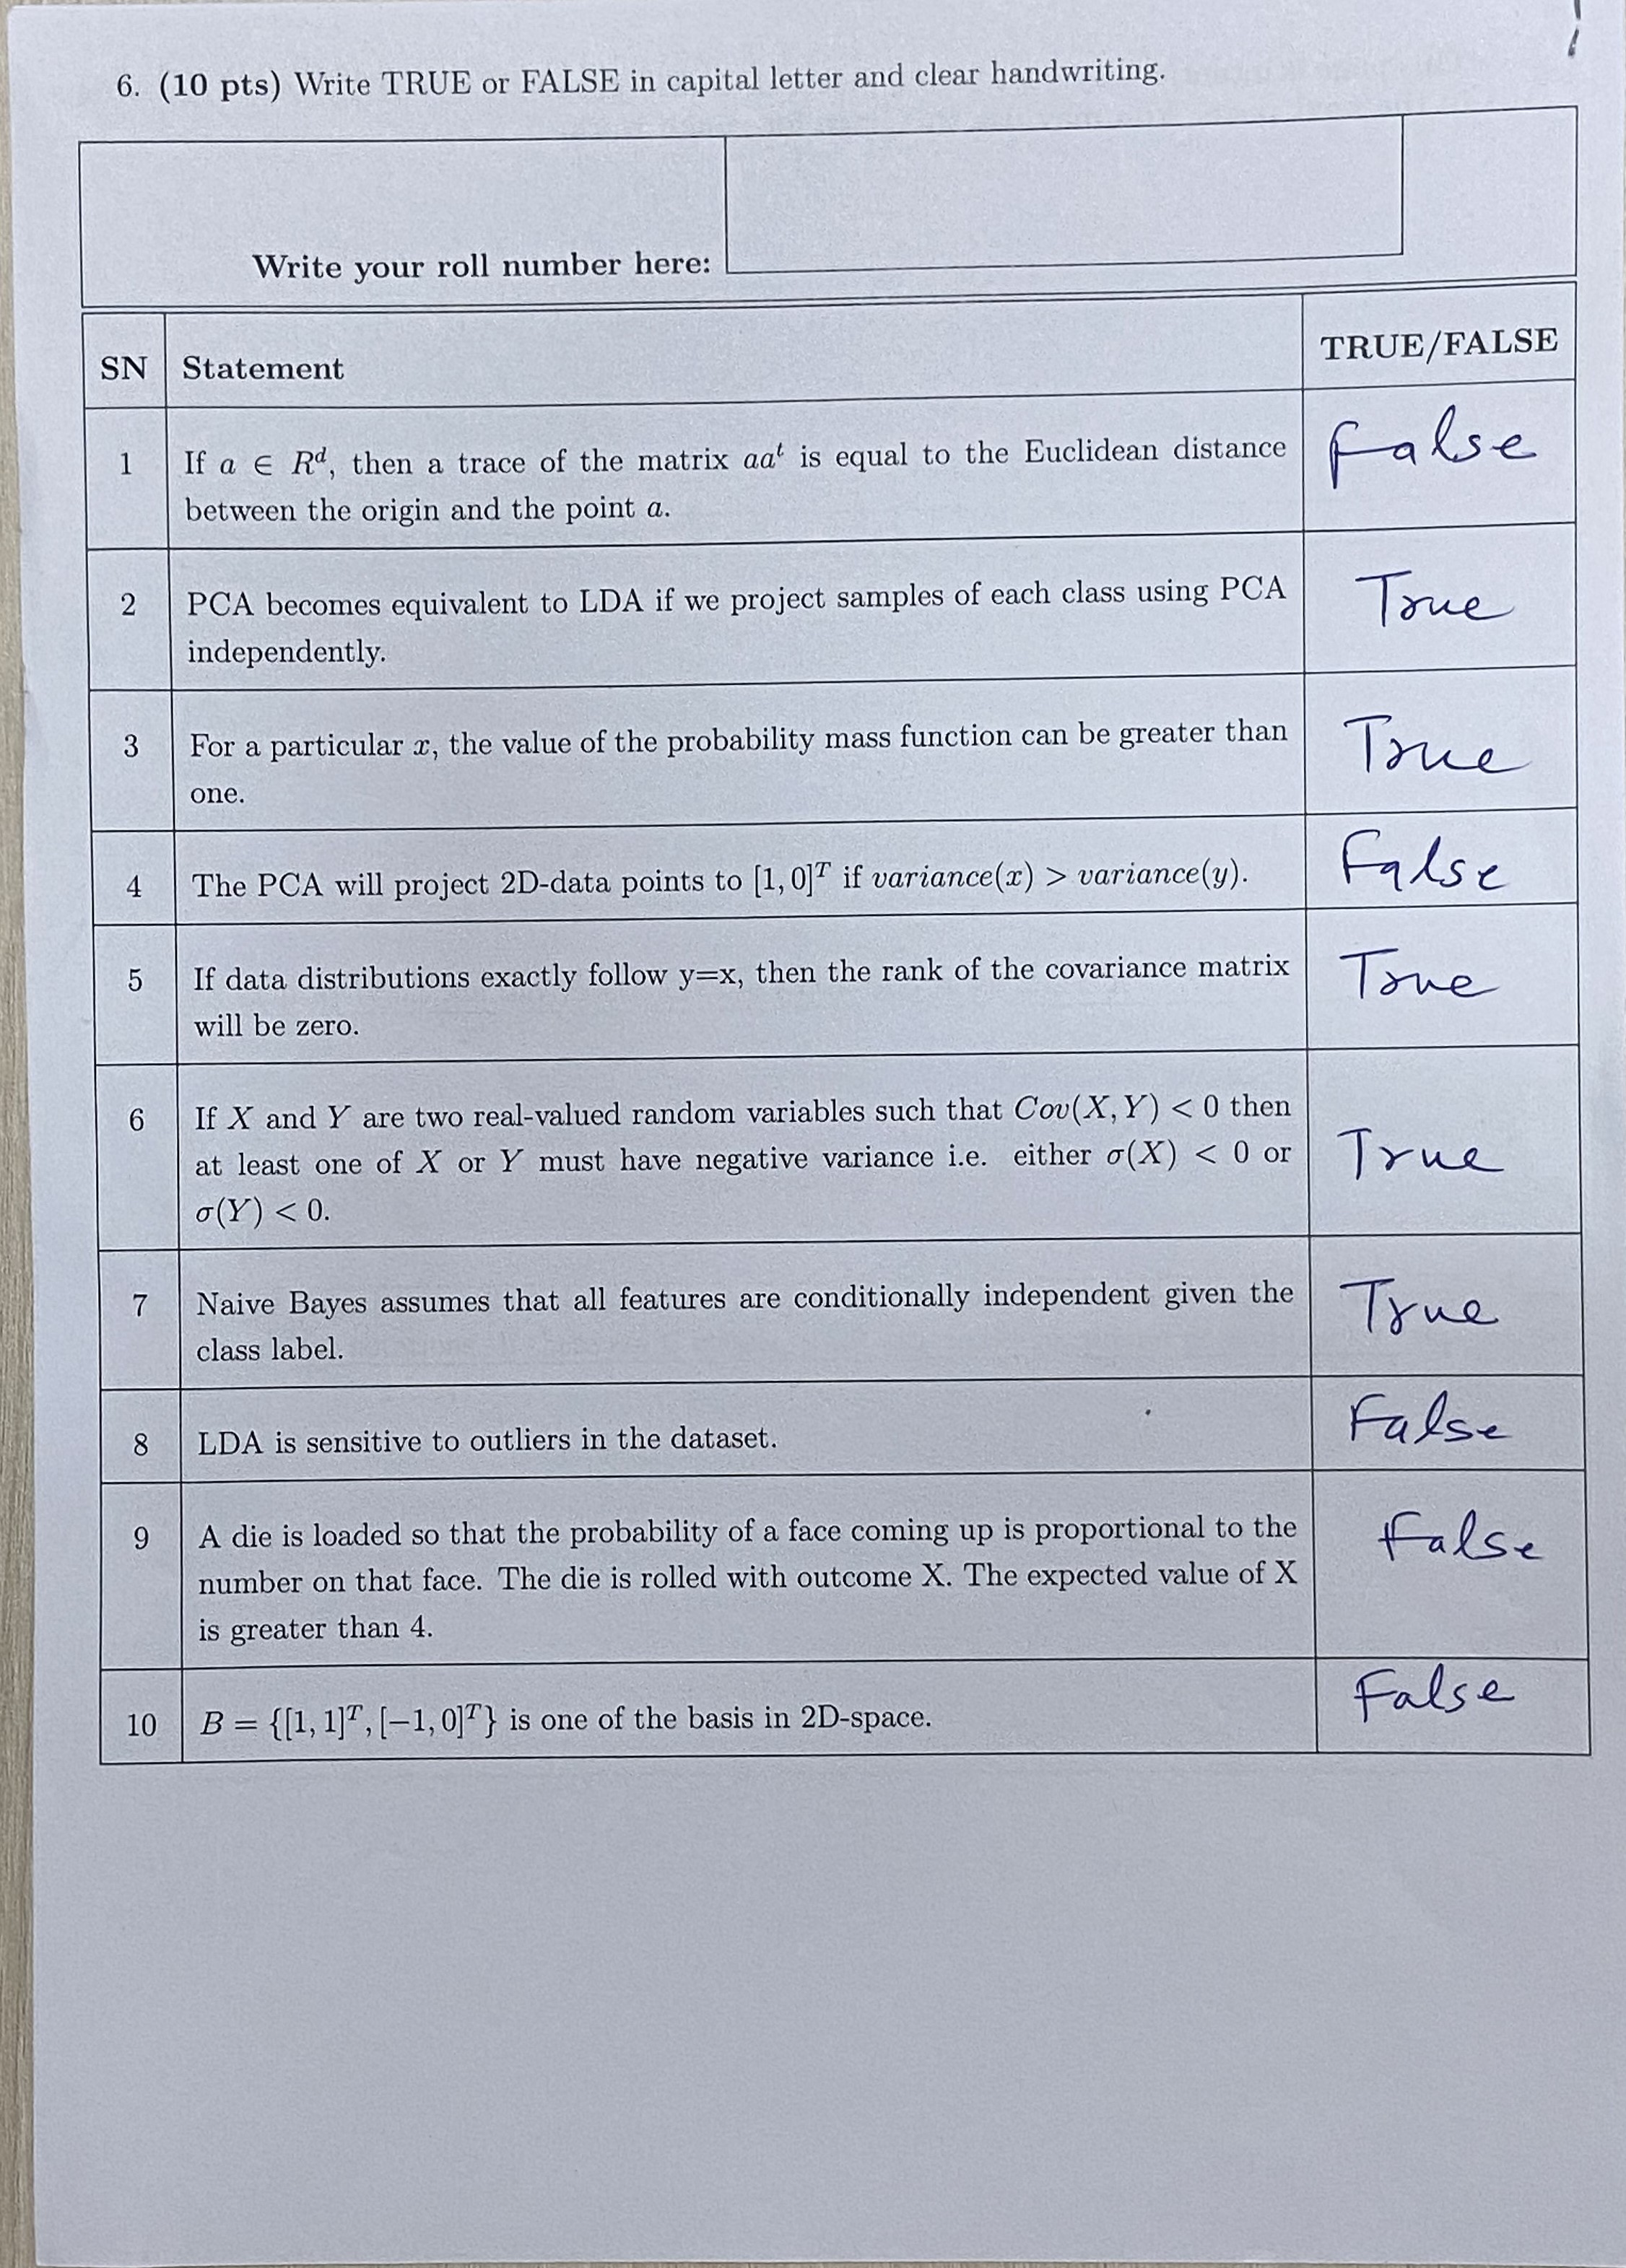 6. (10 pts) Write TRUE or FALSE in capital letter and clear handwriting.
Write your roll number here:
SN Statement TRUE/FALSE
1 If a ∈ R^d, then a trace of the matrix aa^t is equal to the Euclidean distance False
between the origin and the point a.
2 PCA becomes equivalent to LDA if we project samples of each class using PCA True
independently.
3 For a particular x, the value of the probability mass function can be greater than True
one.
4 The PCA will project 2D-data points to [1, 0]^T if variance(x) > variance(y). False
5 If data distributions exactly follow y=x, then the rank of the covariance matrix True
will be zero.
6 If X and Y are two real-valued random variables such that Cov(X, Y) < 0 then
at least one of X or Y must have negative variance i.e. either σ(X) < 0 or True
σ(Y) < 0.
7 Naive Bayes assumes that all features are conditionally independent given the True
class label.
8 LDA is sensitive to outliers in the dataset. False
9 A die is loaded so that the probability of a face coming up is proportional to the False
number on that face. The die is rolled with outcome X. The expected value of X
is greater than 4.
10 B = {[1, 1]^T, [−1, 0]^T} is one of the basis in 2D-space. False